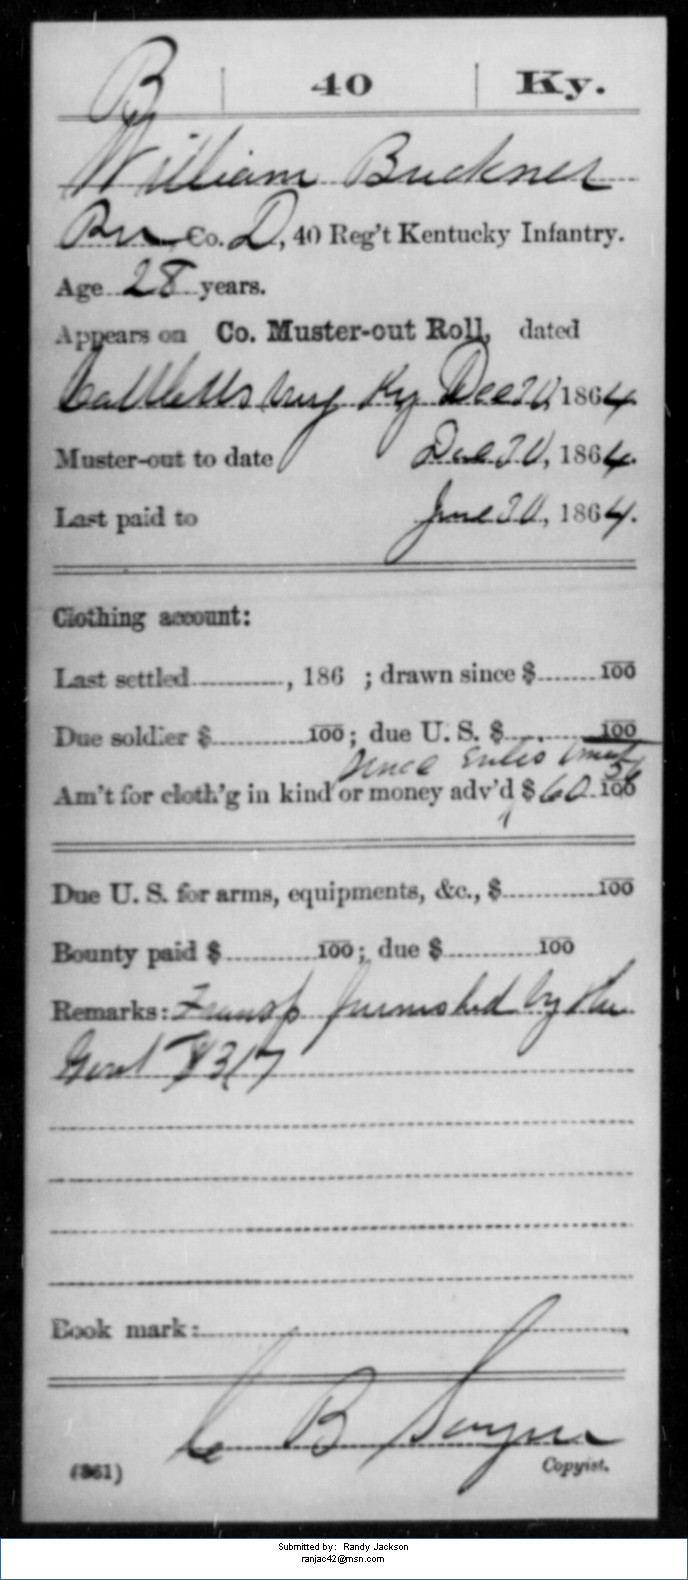 B | 40 | Ky.
William Buckner
Co. D, 40 Reg't Kentucky Infantry.
Age 28 years.
Appears on Co. Muster-out Roll, dated
Catlettsburg Ky Dec 30, 1864.
Muster-out to date Dec 30, 1864.
Last paid to June 30, 1864.
Clothing account:
Last settled , 186 ; drawn since $ 100
Due soldier $ 100; due U. S. $ 100
since enlistment
Am't for cloth'g in kind or money adv'd $ 60 56/100
Due U. S. for arms, equipments, &c., $ 100
Bounty paid $ 100; due $ 100
Remarks: Transp furnished by the
Govt $3 17
Book mark:
C B
(361) Copyist.
Submitted by: Randy Jackson
ranjac42@msn.com